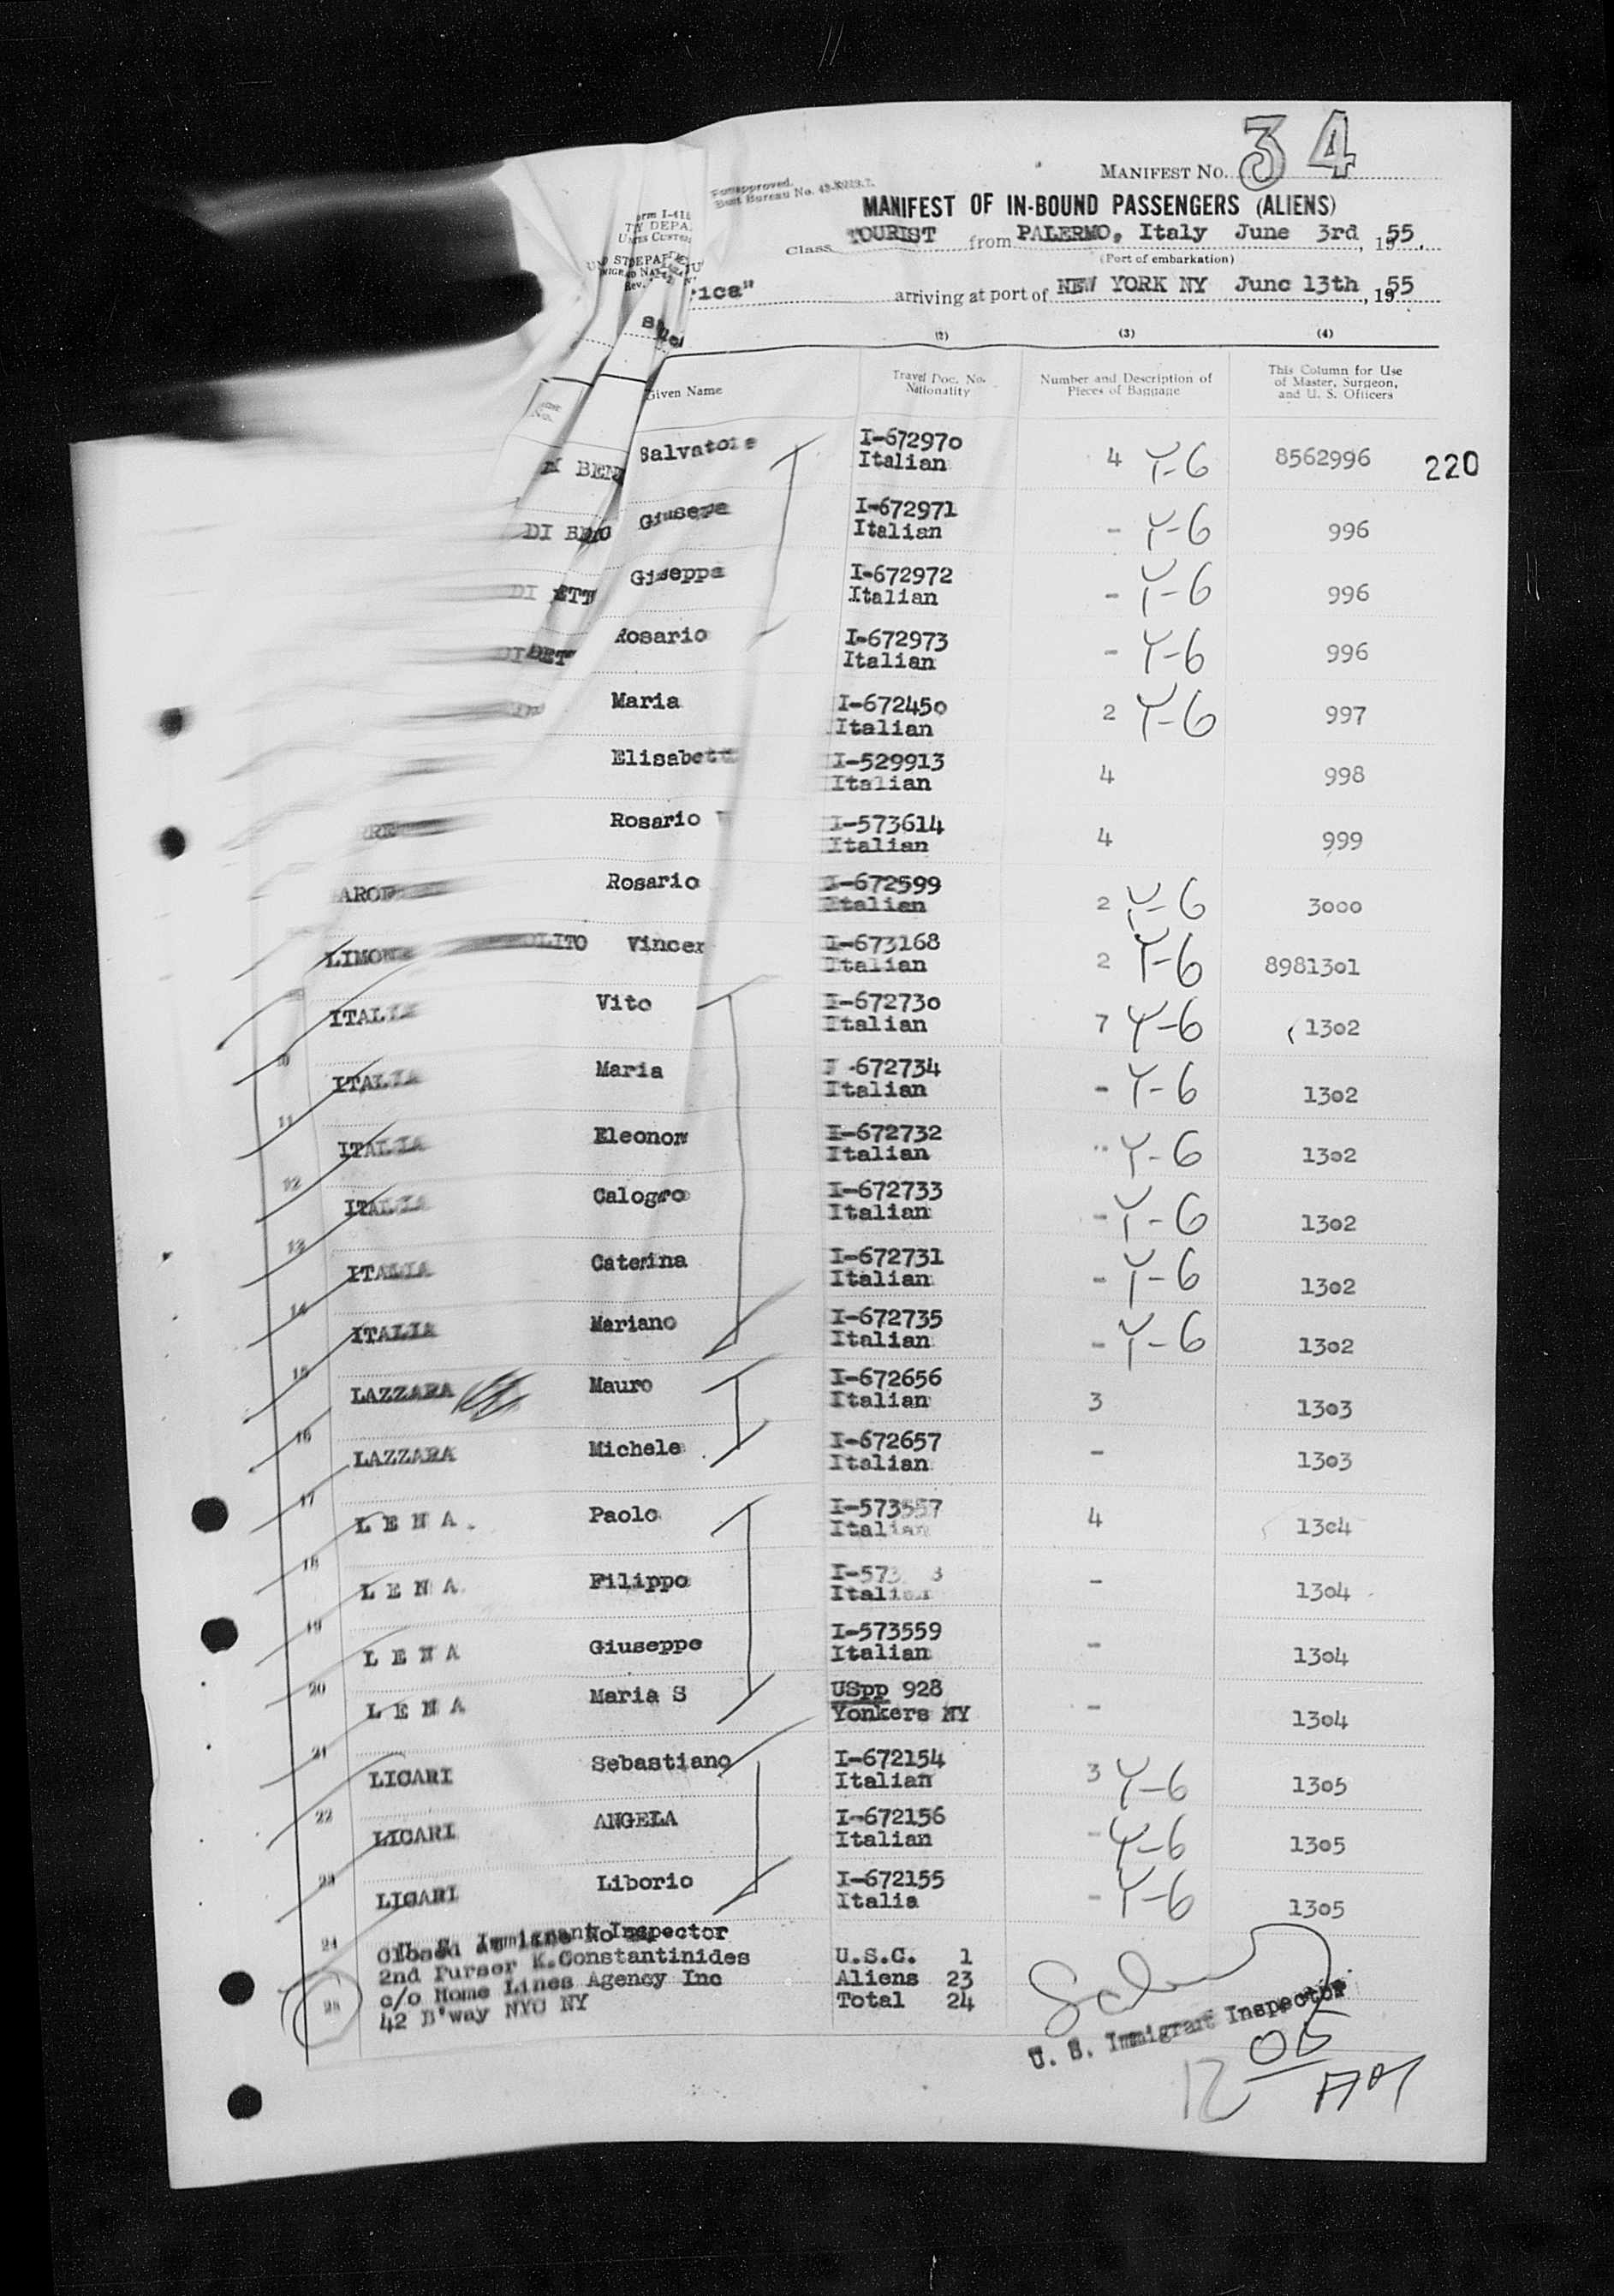 MANIFEST NO. 34
Budget Bureau No.
MANIFEST OF IN-BOUND PASSENGERS (ALIENS)
Class TOURIST from PALERMO, Italy June 3rd, 1955.
(Port of embarkation)
rica" arriving at port of NEW YORK NY June 13th, 1955
(2) (3) (4)
Given Name
Travel Doc. No. Nationality
Number and Description of Pieces of Baggage
This Column for Use of Master, Surgeon, and U. S. Officers
220
DI BEN Salvatore I-672970 Italian 4 Y-6 8562996
DI BEN I-672971 Italian - Y-6 996
DI ETT Giseppa I-672972 Italian - Y-6 996
DI BETT Rosario I-672973 Italian - Y-6 996
Maria I-672450 Italian 2 Y-6 997
Elisabett I-529913 Italian 4 998
Rosario I-573614 Italian 4 999
Rosario I-672599 Italian 2 Y-6 3000
LIMON OLITO Vincen I-673168 Italian 2 Y-6 8981301
ITALIA Vito I-672730 Italian 7 Y-6 1302
10 ITALIA Maria -672734 Italian - Y-6 1302
11 ITALIA Eleonor I-672732 Italian - Y-6 1302
12 ITALIA Calogero I-672733 Italian - Y-6 1302
13 ITALIA Caterina I-672731 Italian - Y-6 1302
14 ITALIA Mariano I-672735 Italian - Y-6 1302
15 LAZZARA Mauro I-672656 Italian 3 1303
16 LAZZARA Michele I-672657 Italian - 1303
17 L E N A . Paolo I-573557 Italian 4 1304
18 L E N A Filippo I-573 8 Italian - 1304
19 L E N A Giuseppe I-573559 Italian - 1304
20 L E N A Maria S USpp 928 Yonkers NY - 1304
21 LICARI Sebastiano I-672154 Italian 3 Y-6 1305
22 LICARI ANGELA I-672156 Italian - Y-6 1305
23 LICARI Liborio I-672155 Italia - Y-6 1305
24 U. S. Immigrant Inspector
Closed
2nd Purser K.Constantinides U.S.C. 1
c/o Home Lines Agency Inc Aliens 23
25 42 B'way NYC NY Total 24
U. S. Immigrant Inspector
12 05 AM